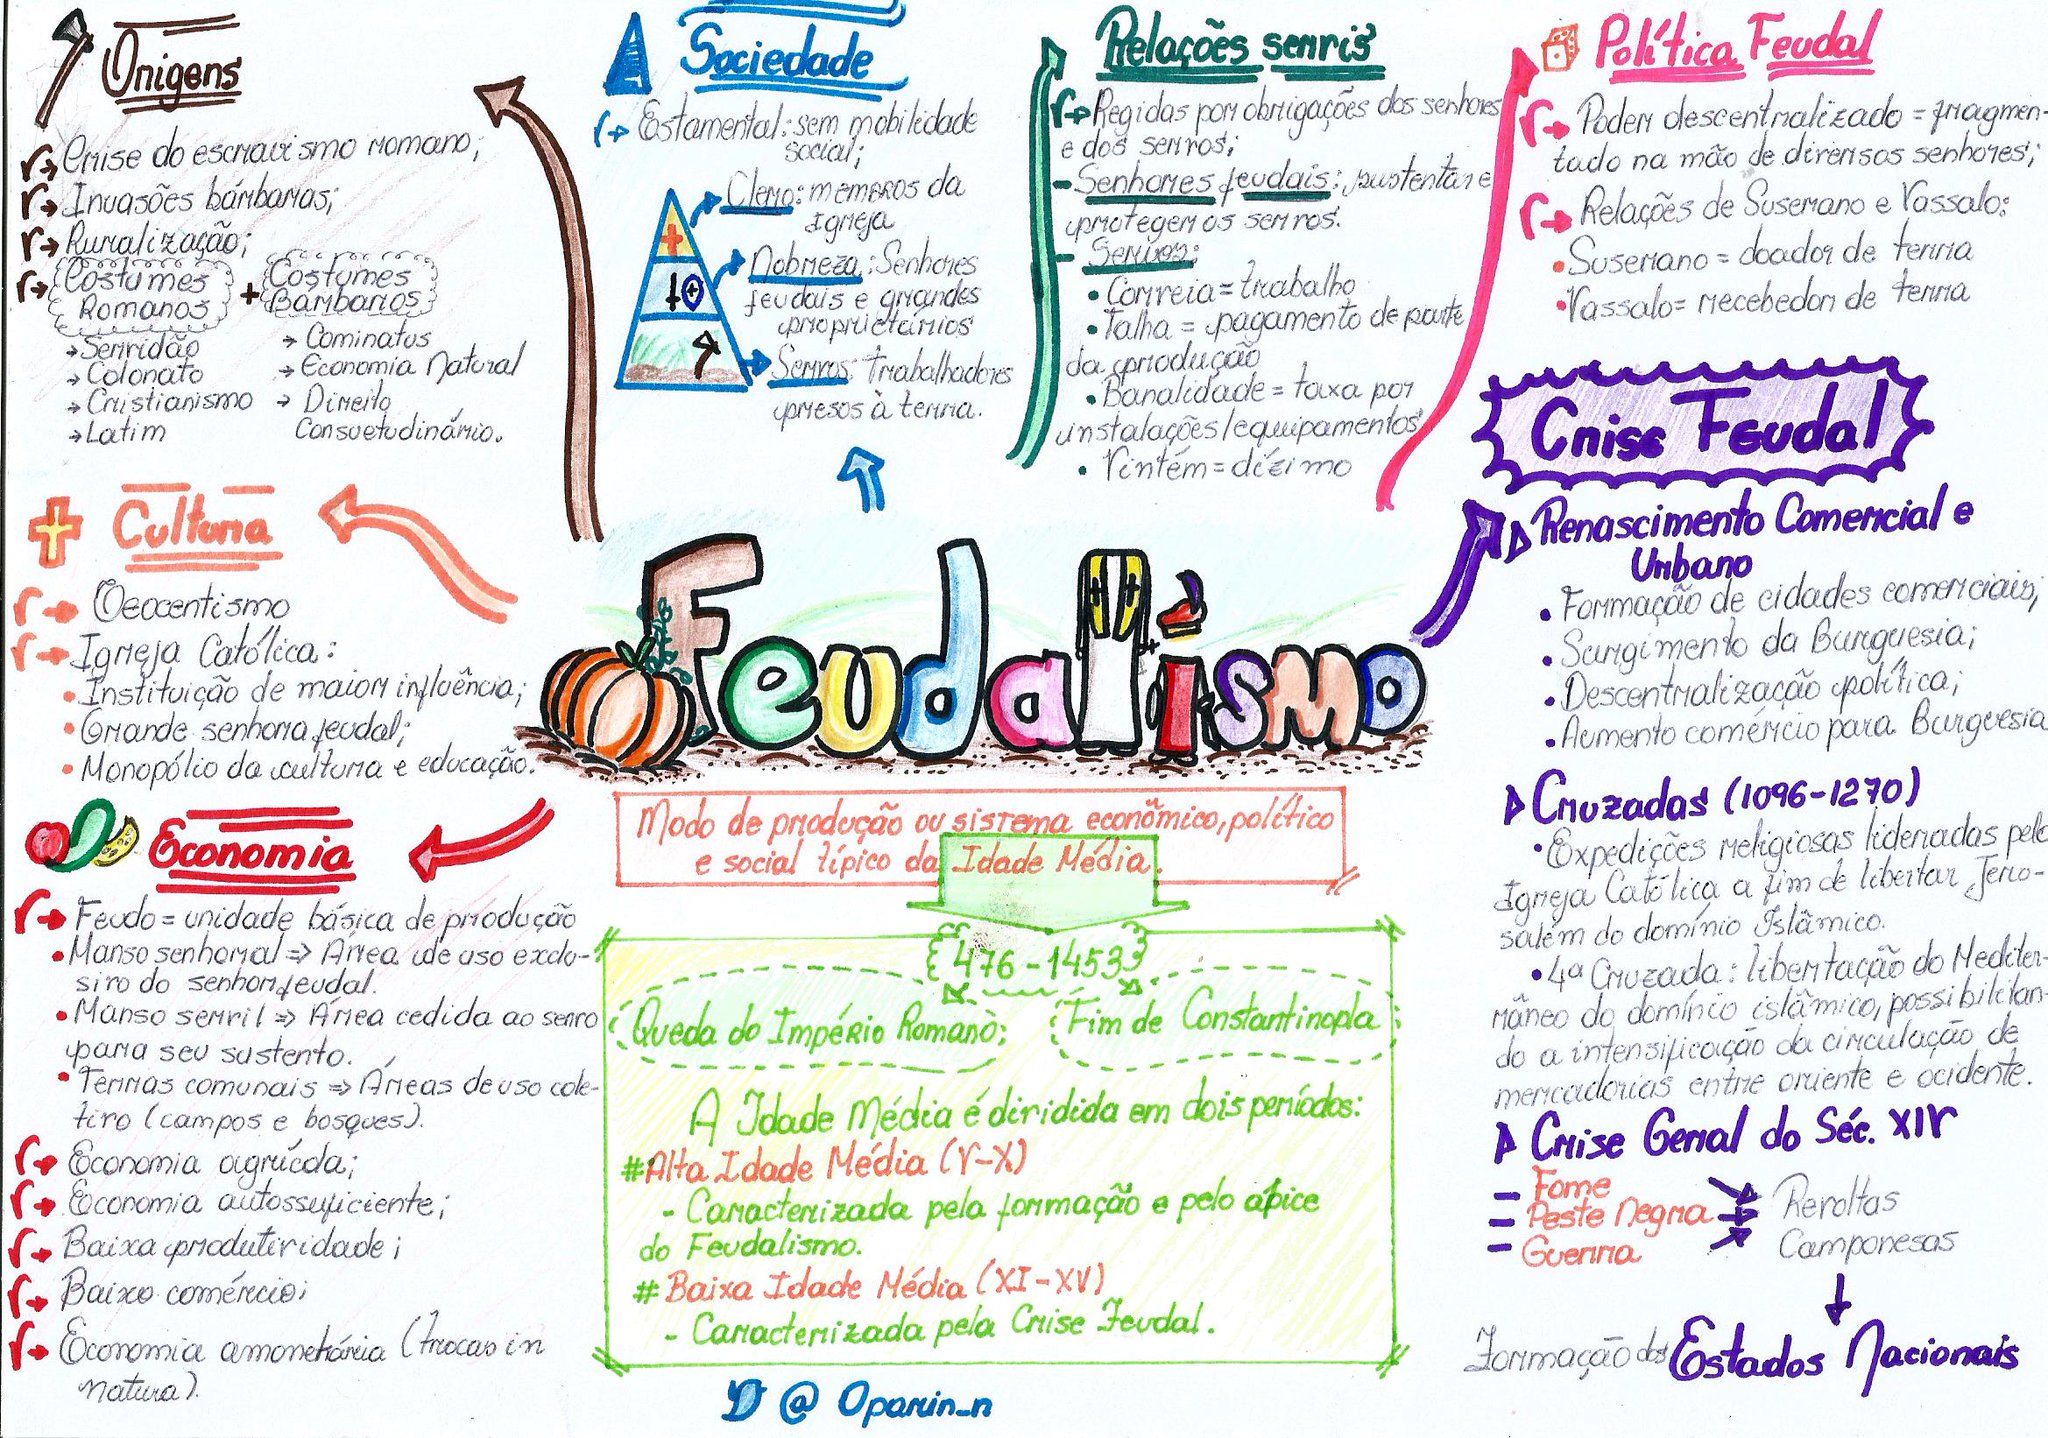 Origens
Crise do escravismo romano;
Invasões bárbaras;
Ruralização;
Costumes
Romanos
+
Costumes
Bárbaros
→ Servidão
→ Colonato
→ Cristianismo
→ Latim
→ Cominatus
→ Economia Natural
→ Direito
Consuetudinário.
Sociedade
Estamental: sem mobilidade
social;
Clero: membros da
Igreja
Nobreza: Senhores
feudais e grandes
proprietários
Servos: Trabalhadores
presos à terra.
Relações servis
Regidas por obrigações dos senhores
e dos servos;
- Senhores feudais: sustentar e
protegem os servos.
- Servos:
• Corveia = trabalho
• Talha = pagamento de parte
da produção
• Banalidade = taxa por
instalações/equipamentos
• Vintém = dízimo
Política Feudal
Poder descentralizado = fragmen-
tado na mão de diversos senhores;
Relações de Suserano e Vassalo:
• Suserano = doador de terra
• Vassalo = recebedor de terra
Cultura
Oeocentismo
Igreja Católica:
• Instituição de maior influência;
• Grande senhora feudal;
• Monopólio da cultura e educação.
Economia
Feudo = unidade básica de produção
• Manso senhorial ⇒ Área de uso exclu-
sivo do senhor feudal.
• Manso servil ⇒ Área cedida ao servo
para seu sustento.
• Terras comunais ⇒ Áreas de uso cole-
tivo (campos e bosques).
Economia agrícola;
Economia autossuficiente;
Baixa produtividade;
Baixo comércio;
Economia amonetária (trocas in
natura).
Feudalismo
Modo de produção ou sistema econômico, político
e social típico da Idade Média.
476-1453
Queda do Império Romano;
Fim de Constantinopla
A Idade Média é dividida em dois períodos:
# Alta Idade Média (V-X)
- Caracterizada pela formação e pelo ápice
do Feudalismo.
# Baixa Idade Média (XI-XV)
- Caracterizada pela Crise Feudal.
@Oparin_n
Crise Feudal
Renascimento Comercial e
Urbano
• Formação de cidades comerciais;
• Surgimento da Burguesia;
• Descentralização política;
• Aumento comércio para Burguesia
Cruzadas (1096-1270)
• Expedições religiosas lideradas pela
Igreja Católica a fim de libertar Jeru-
salém do domínio Islâmico.
• 4ª Cruzada: libertação do Mediter-
râneo do domínio islâmico, possibilitan-
do a intensificação da circulação de
mercadorias entre oriente e ocidente.
Crise Geral do Séc. XIV
- Fome
- Peste Negra
- Guerra
Revoltas
Camponesas
Formação dos Estados Nacionais